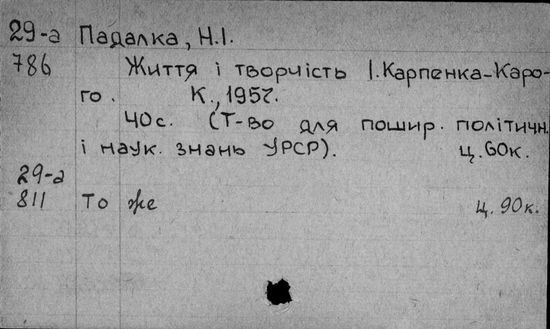 29-а Падалка, Н.І.
786 Життя і творчість І.Карпенка-Каро-
го. К., 1957.
40с. (Т-во для пошир. політичн.
і наук. знань УРСР). ц.60к.
29-а
811 То же ц.90к.